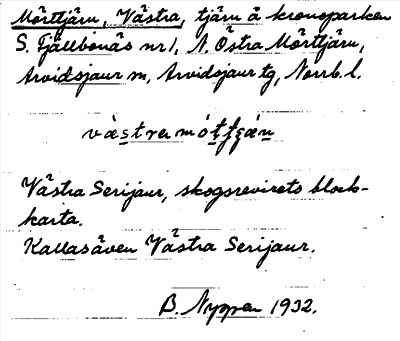 Mörttjärn, Västra, tjärn å kronoparken
S. Fjällbonäs nr 1, N. Östra Mörttjärn,
Arvidsjaur sn, Arvidsjaur tg, Norrb. l.
Västra Serijaur, skogsrevirets block-
karta.
Kallas även Västra Serijaur.
B. Nygren 1932.